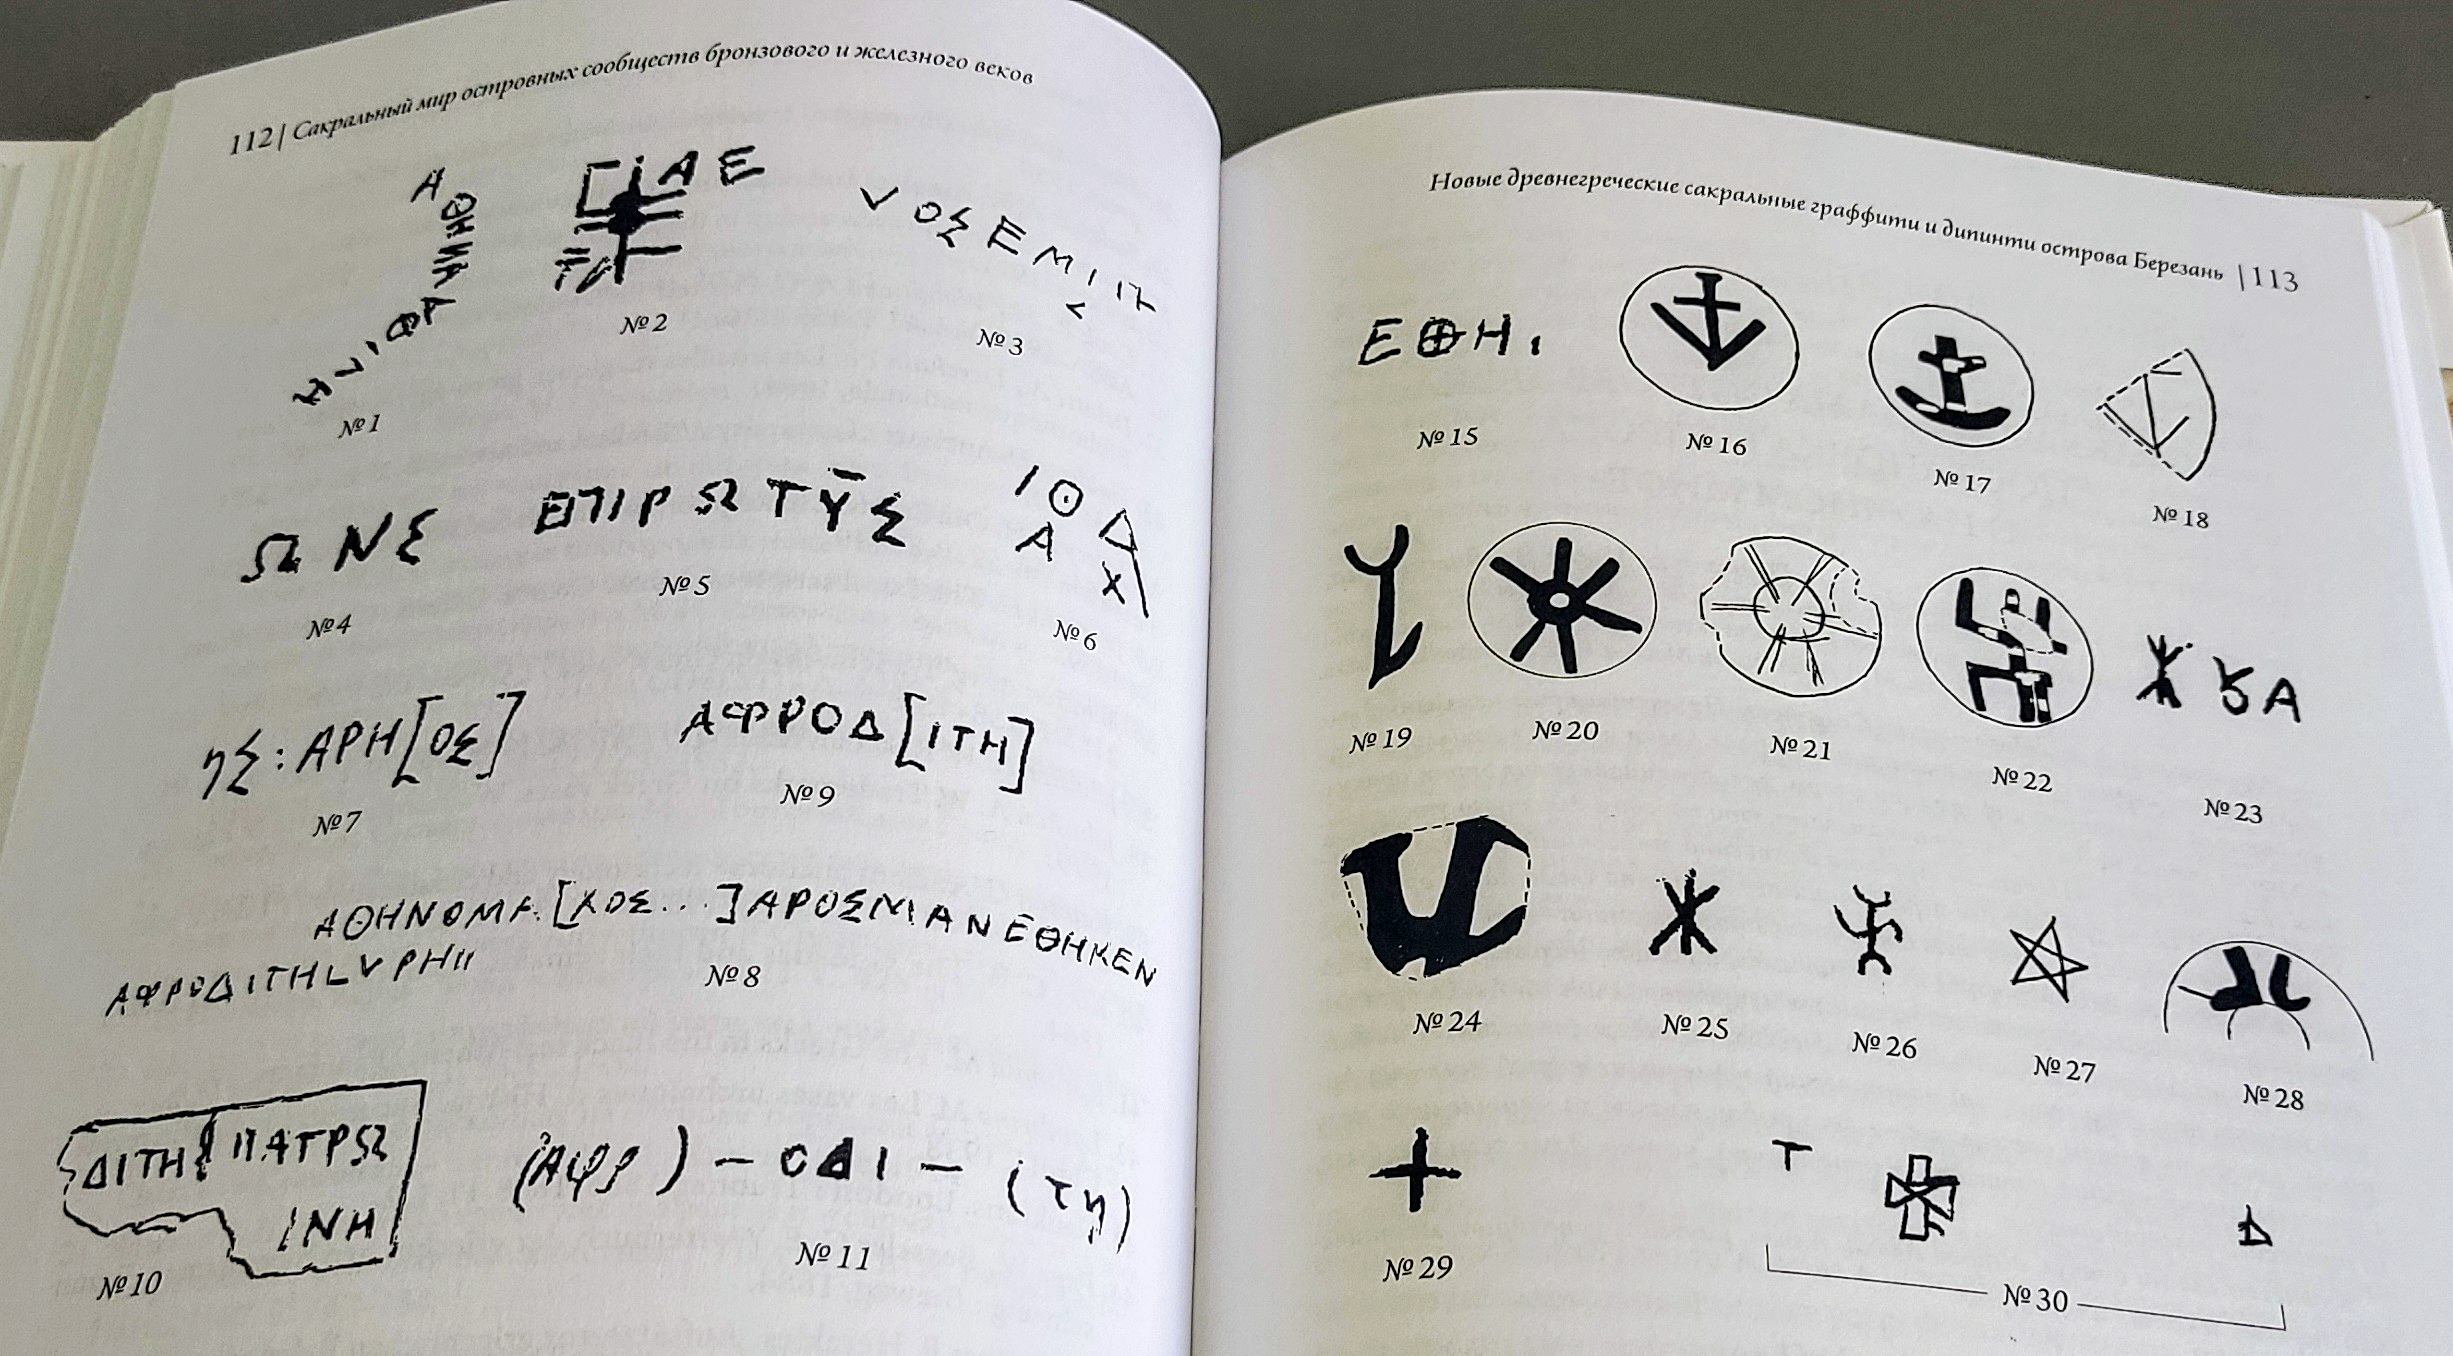 112 | Сакральный мир островных сообществ бронзового и железного веков
№1
№2
№3
ΩΝΣ
№4
ΕΠΙΡΩΤΥΣ
№5
ΙΘΔ
ΑΧ
№6
ηΣ:ΑΡΗ[ΟΣ]
№7
ΑΦΡΟΔ[ΙΤΗ]
№9
ΑΘΗΝΟΜΑ.[ΧΟΣ...]ΑΡΟΣΜΑΝΕΘΗΚΕΝ
ΑΦΡΟΔΙΤΗ
№8
ΔΙΤΗΙ ΠΑΤΡΩ
ΙΝΗ
№10
(Αφρ) – ΟΔΙ – (τη)
№11
Новые древнегреческие сакральные граффити и дипинти острова Березань | 113
ΕΘΗΙ
№15
№16
№17
№18
№19
№20
№21
№22
№23
№24
№25
№26
№27
№28
№29
Τ
Δ
№30